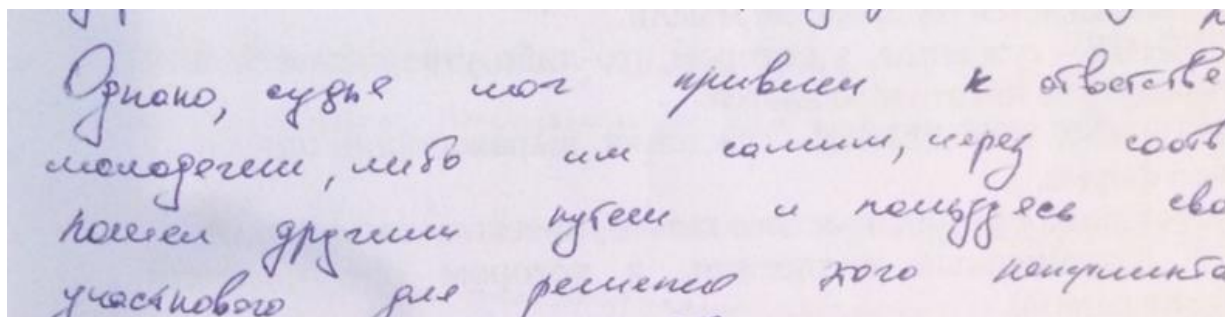 Однако, судья мог привлеч к ответстве
молодежи, либо им самим, через соотв
пошел другим путем и пользуясь сво
участкового для решения этого конфликта